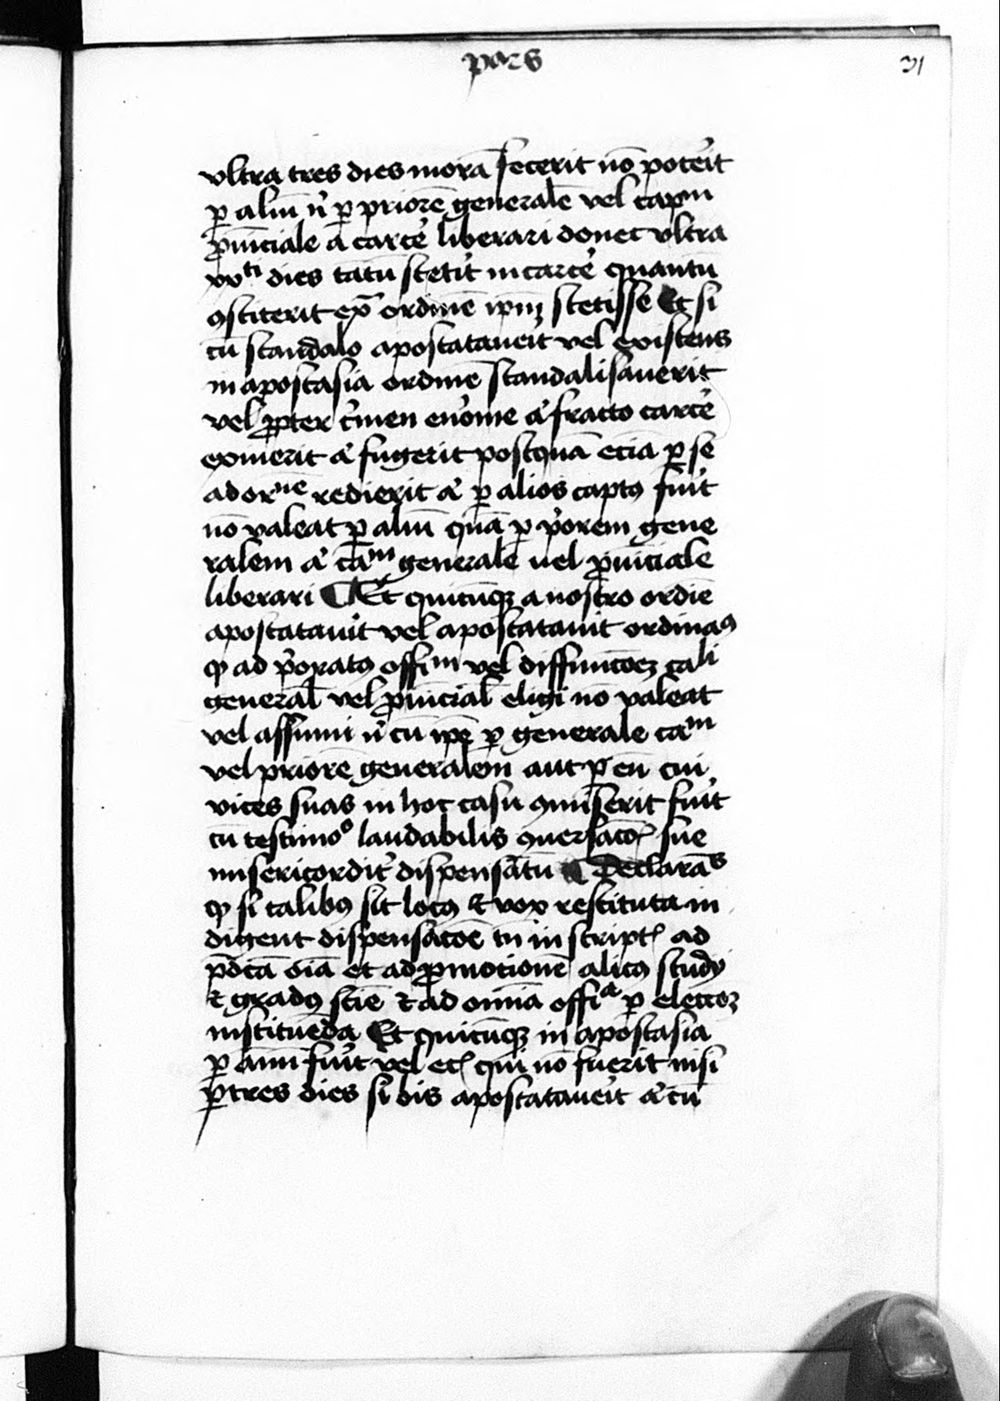 pars
31
vltra tres dies morā fecerit nō poterit
ꝑ aliū nˢ ꝑ priorē generalē vel capm
ꝓuīciale a carcē liberari donec vltra
xvᵗⁱ dies tātū stetit in carcē quantū
ꝯstiterit ex̄ ordinē ipm̄ stetisse Et si
cū scandalo apostataueit vel existens
in apostasia ordinē scandalisauerit
vel ꝓpter c̓men enorme a fracto carcē
exiuerit a fugerit postquā eciā ꝑ se
ad orⁿᵉ redierit a ꝑ alios captꝰ fuit
nō valeat ꝑ aliū quā ꝑ p̓orem gene
ralem a caᵐ generale uel ꝓuīciale
liberari ¶ Et quicūqꝫ a nostro ordīe
apostatauit vel apostatauit ordinaꝰ
ꝙ ad p̓oratꝰ offiᵐ vel diffinicōeꝫ caˡⁱ
general vel ꝓuīcial eligi nō valeat
vel assumi nˢ cū ip̄e ꝑ generale caᵐ
vel priorē generalem aut ꝑ eū cui
vices suas in hoc casu ꝯmiserit fuit
cū testimoᵒ laudabilis ꝯuersacōꝭ sue
misericordit̓ dispensatū ¶ Declaraˢ
ꝙ si talibꝰ sit locꝰ ⁊ vox restituta in
digent dispensacōe tn̄ in scriptꝭ ad
p̄dc̄a oīa et ad ꝓmotionē alicꝰ studij
⁊ gradꝰ sciē ⁊ ad omīa offiᵃ ꝑ elecc̄oꝫ
instituēda Et quicūqꝫ in apostasia
ꝑ annū fuit vel etꝭ qui nō fuerit nisi
ꝑ tres dies si bis apostataueit a cū